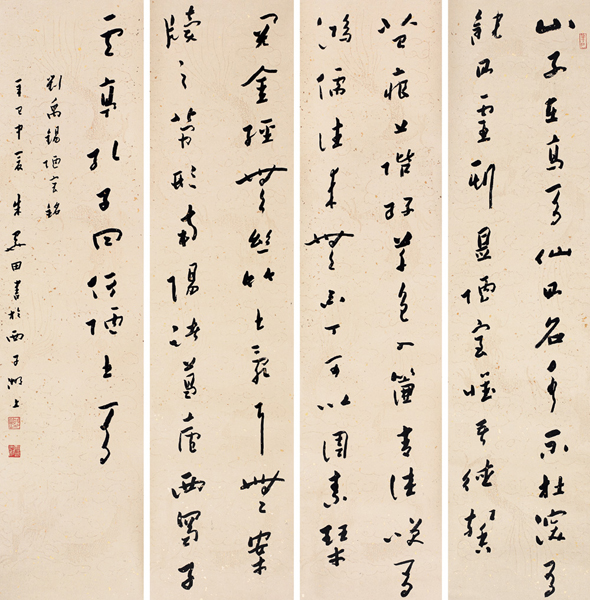 山不在高有仙則名水不在深有
龍則靈斯是陋室惟吾德馨
苔痕上階綠草色入簾青談笑有
鴻儒往來無白丁可以調素琴
閱金經無絲竹之亂耳無案
牘之勞形南陽諸葛廬西蜀子
雲亭孔子曰何陋之有
劉禹錫陋室銘
辛巳中夏朱關田書於西子湖上